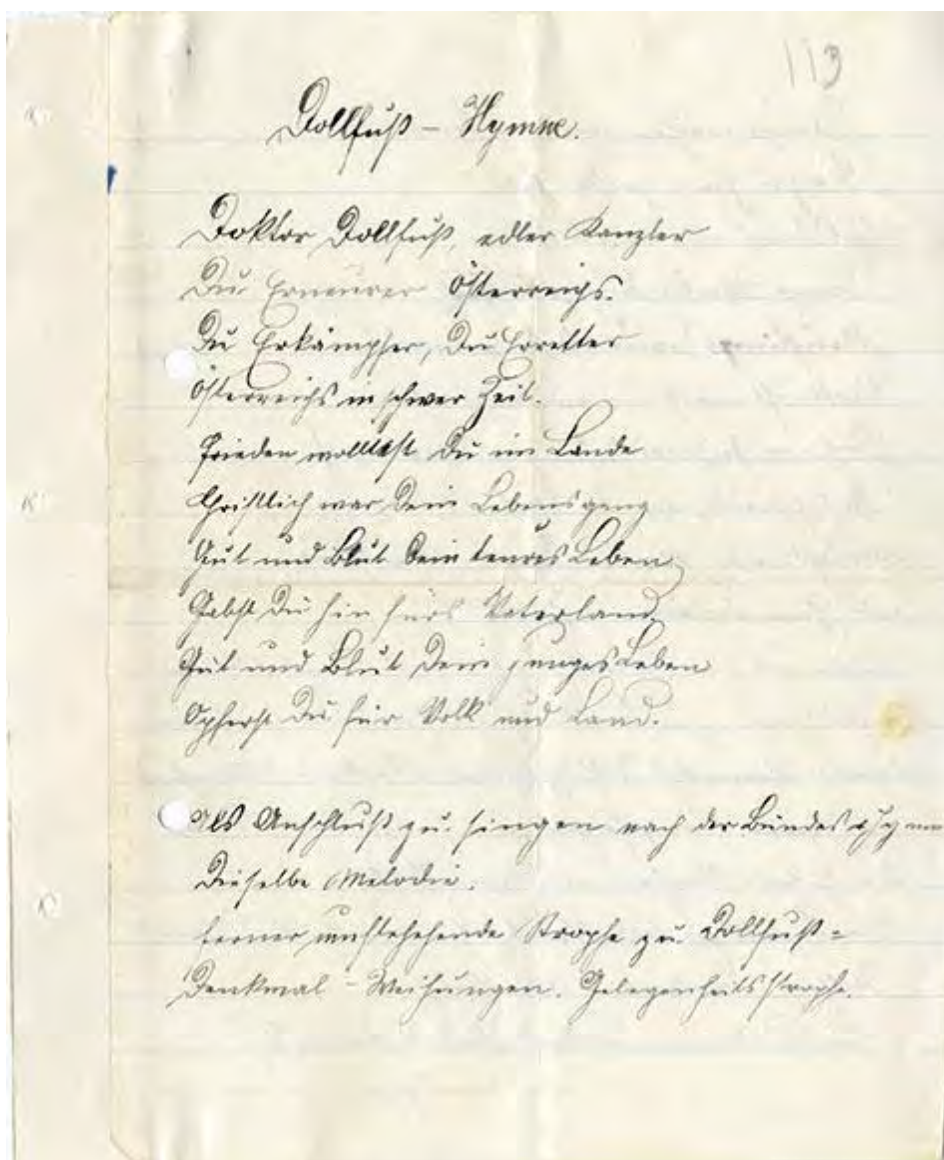 113
Dollfuß - Hymne.
Doktor Dollfuß, edler Kanzler
Du Erneurer Österreichs.
Du Erkämpfer, Du Erretter
Österreichs in schwer Zeit.
Frieden wolltest Du im Lande
Christlich war Dein Lebensgang
Gut und Blut Dein teures Leben
Gabst Du hin fürs Vaterland.
Gut und Blut Dein junges Leben
Opferst Du für Volk und Land.
Als Anschluß zu singen nach der Bundeshymn
Dieselbe Melodie.
Ferner umstehehende Strophe zu Dollfuß=
Denkmal - Weihungen. Gelegenheitsstrophe.